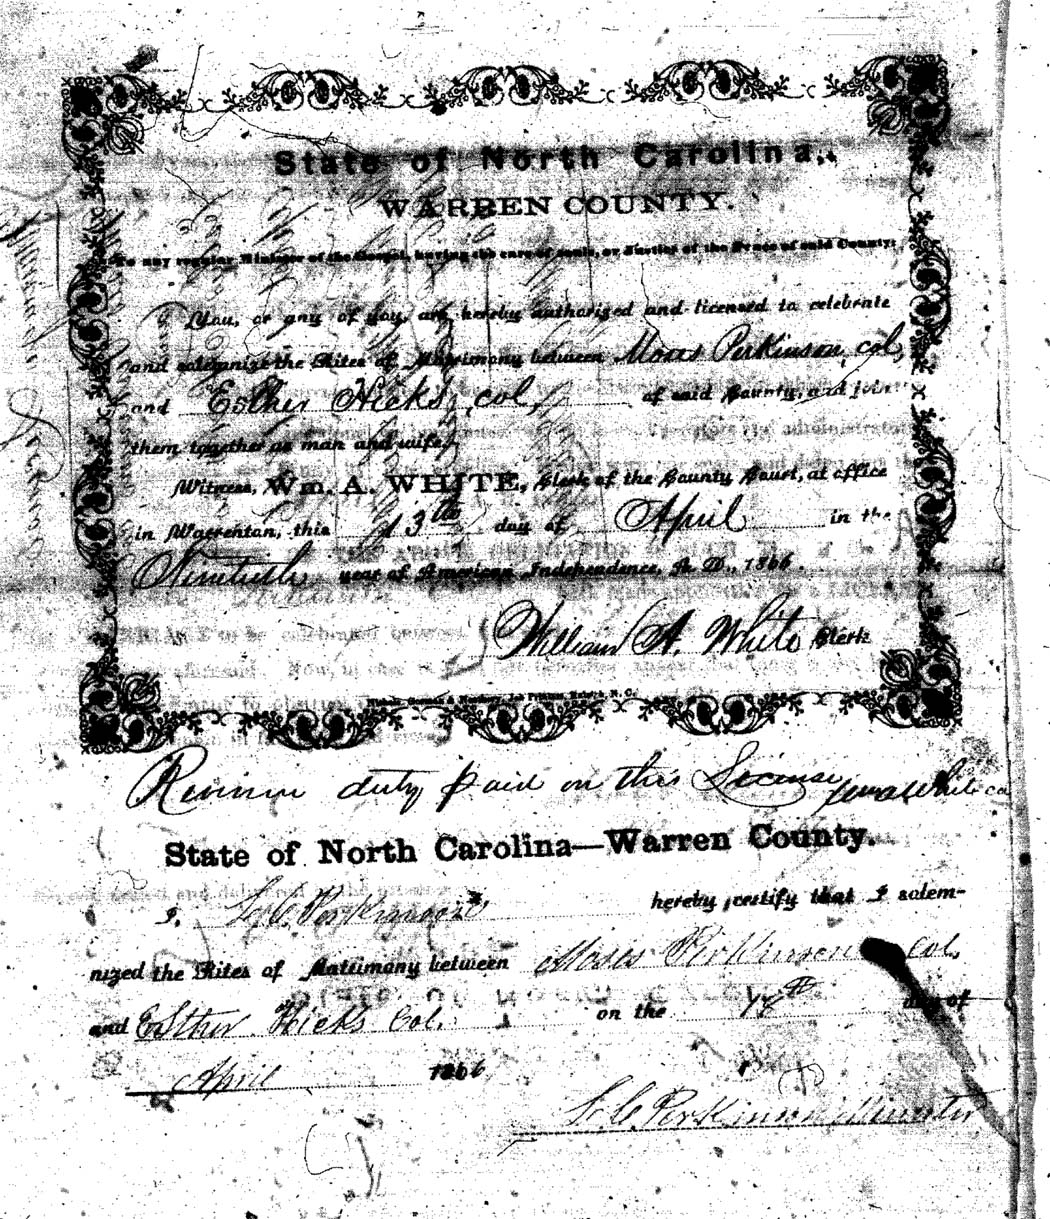 State of North Carolina,
WARREN COUNTY.
To any regular Minister of the Gospel, having the care of souls, or Justice of the Peace of said County:
You, or any of you, are hereby authorized and licensed to celebrate
and solemnize the Rites of Matrimony between Moses Perkinson, col,
and Esther Hicks, col, of said County, and join
them together as man and wife.
Witness, Wm. A. WHITE, Clerk of the County Court, at office
in Warrenton, this 13th day of April in the
Ninetieth year of American Independence, A. D., 1866.
William A. White Clerk
Job Printers, Raleigh, N. C.
Revenue duty paid on this License
State of North Carolina—Warren County.
I, L. C. Perkinson hereby certify that I solem-
nized the Rites of Matrimony between Moses Perkinson Col.
and Esther Hicks Col. on the 14th day of
April 1866
L. C. Perkinson Minister